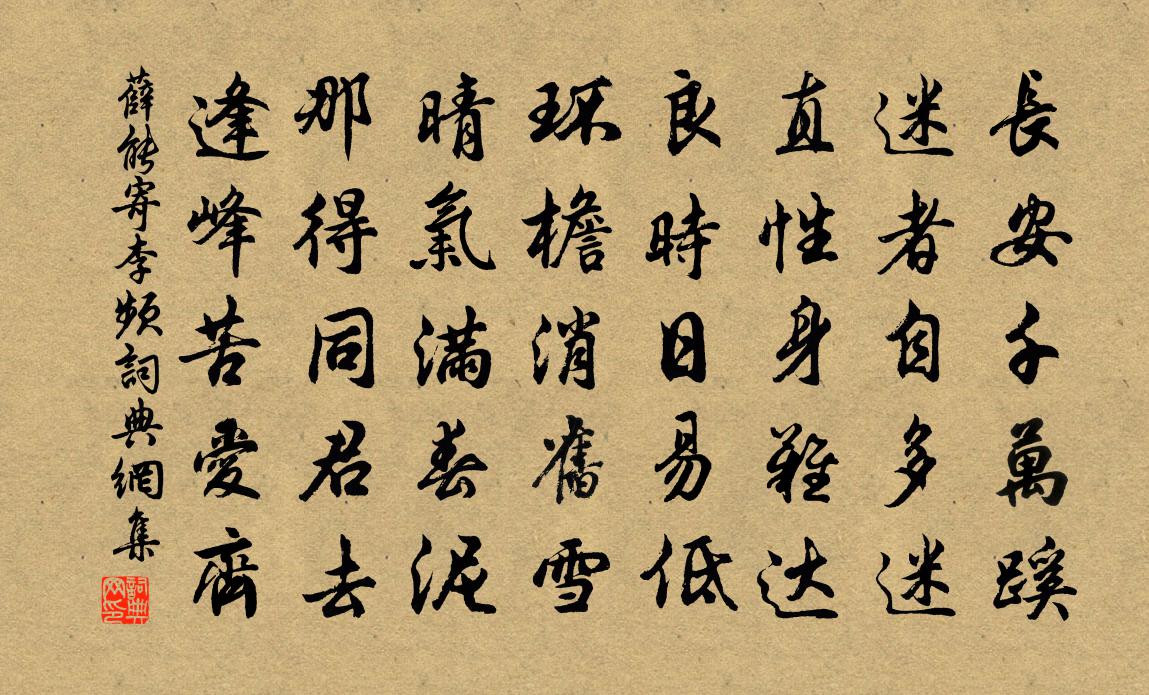 長安千萬蹊
迷者自多迷
直性身難达
良時日易低
环檐消舊雪
晴氣滿春泥
那得同君去
逢峰苦愛齊
薛能寄李頻詞典網集
詞典网印